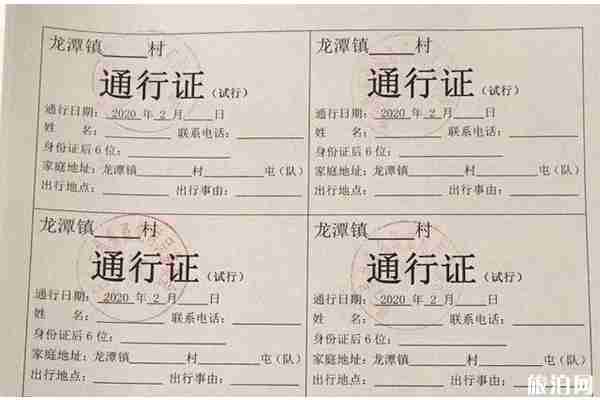 龙潭镇____村
通行证(试行)
通行日期: 2020 年 2 月____日
姓 名:________联系电话:________
身份证后6位:____________
家庭地址: 龙潭镇________村________屯(队)
出行地点:________出行事由:________
龙潭镇____村
通行证(试行)
通行日期: 2020 年 2 月____日
姓 名:________联系电话:________
身份证后6位:____________
家庭地址: 龙潭镇________村________屯(队)
出行地点:________出行事由:________
龙潭镇____村
通行证(试行)
通行日期: 2020 年 2 月____日
姓 名:________联系电话:________
身份证后6位:____________
家庭地址: 龙潭镇________村________屯(队)
出行地点:________出行事由:________
龙潭镇____村
通行证(试行)
通行日期: 2020 年 2 月____日
姓 名:________联系电话:________
身份证后6位:____________
家庭地址: 龙潭镇________村________屯(队)
出行地点:________出行事由:________
旅泊网